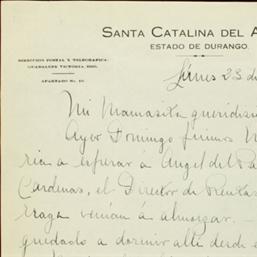 SANTA CATALINA DEL A
ESTADO DE DURANGO.
DIRECCION POSTAL Y TELEGRAFICA:
GUADALUPE VICTORIA, DGO.
APARTADO No. 10
Lunes 23 d
Mi Mamasita queridisi
Ayer Domingo fuimos
ria a esperar a Angel del
Cardenas, el Director de Rentas
traga venian á almorzar. -
quedado a dormir allí desde e